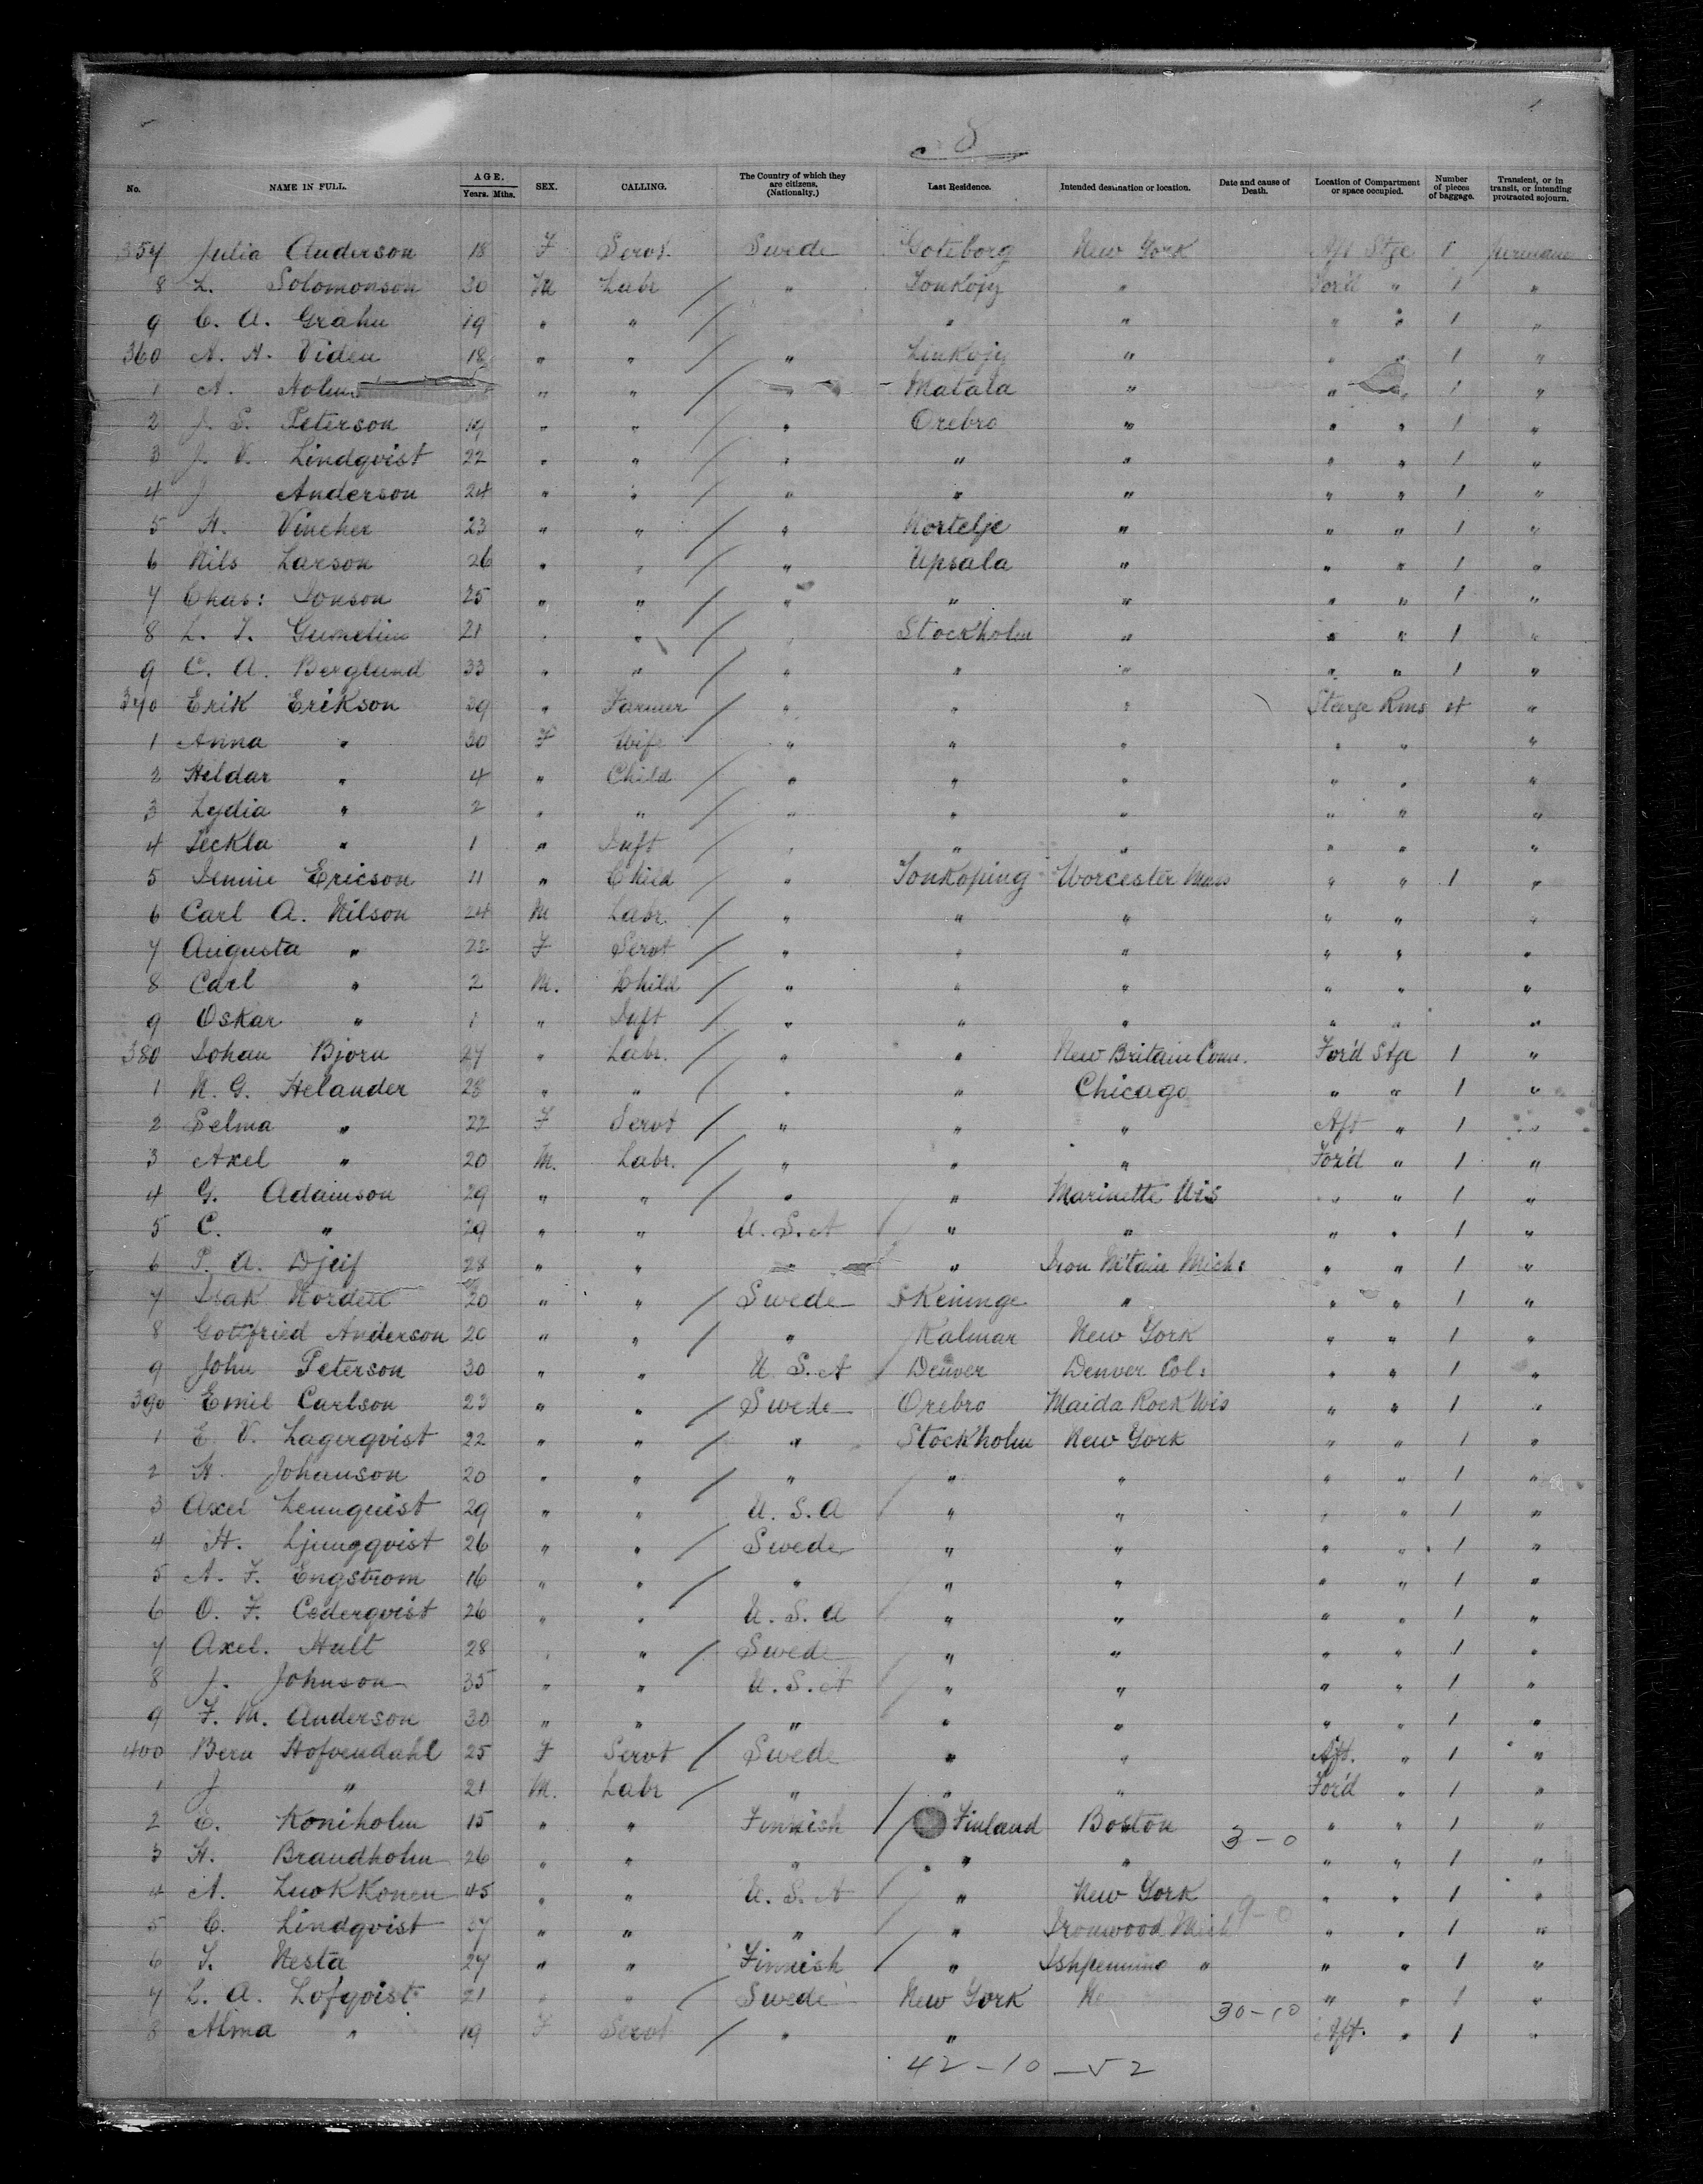 8
No. NAME IN FULL. AGE. Years. Mths. SEX. CALLING. The Country of which they are citizens. (Nationalty.) Last Residence. Intended destination or location. Date and cause of Death. Location of Compartment or space occupied. Number of pieces of baggage. Transient, or in transit, or intending protracted sojourn.
357 Julia Anderson 18 F Servt. Swede Goteborg New York Aft Stge 1
8 L. Solomonson 30 M Labr / " Jonkopg " For'd " 1 "
9 C. A. Grahn 19 " " / " " " " 1 "
360 A. H. Viden 18 " " / " Linkopg " " " 1 "
1 A. Holm " " / " Matala " " " 1 "
2 J. S. Peterson 19 " " / " Orebro " " " 1 "
3 J. V. Lindqvist 22 " " / " " " " " 1 "
4 J Anderson 24 " " / " " " " " 1 "
5 H. Vincher 23 " " / " Nortelje " " " 1 "
6 Nils Larson 26 " " / " Upsala " " " 1 "
7 Chas: Jonson 25 " " / " " " " " 1 "
8 L. J. Gumelin 21 " " " Stockholm " " " 1 "
9 C. A. Berglund 33 " " / " " " " " 1 "
370 Erik Erikson 39 " Farmer / " " " Sterge Rms 4 "
1 Anna " 30 F Wife / " " " " " "
2 Hildar " 4 " Child / " " " " " "
3 Lydia " 2 " " / " " " " " "
4 Teckla " 1 " Inft / " " " " " "
5 Jennie Ericson 11 " Child / " Jonkoping Worcester Mass " " 1 "
6 Carl A. Nilson 24 M Labr. / " " " " " "
7 Augusta " 22 F Servt / " " " " " "
8 Carl " 2 M. Child / " " " " " "
9 Oskar " 1 " Inft / " " " " " "
380 Johan Bjorn 27 " Labr. / " " New Britain Conn. For'd Stg 1 "
1 N. G. Helander 28 " " / " " Chicago " " 1 "
2 Selma " 22 F Servt / " " " Aft " 1 "
3 Axel " 20 M. Labr. / " " " For'd " 1 "
4 G. Adamson 29 " " / " " Marinette Wis " " 1 "
5 C. " 29 " " U. S. A / " " " " 1 "
6 P. A. Djeif 28 " " " Iron M'tain Mich: " " 1 "
7 Isak Nordell 20 " " / Swede Skeninge " " " 1 "
8 Gottfried Anderson 20 " " / " Kalmar New York " " 1 "
9 John Peterson 30 " " U. S. A / Denver Denver Col: " " 1 "
390 Emil Carlson 23 " " / Swede Orebro Maida Rock Wis " " 1 "
1 E. V. Lagerqvist 22 " " / " Stockholm New York " " 1 "
2 H. Johanson 20 " " / " " " " " 1 "
3 Axel Lennquist 29 " " U. S. A / " " " " 1 "
4 H. Ljungqvist 26 " " / Swede " " " " 1 "
5 A. F. Engstrom 16 " " / " " " " " 1 "
6 O. F. Cederqvist 26 " " U. S. A / " " " " 1 "
7 Axel. Hult 28 " " / Swede " " " " 1 "
8 J. Johnson 35 " " U. S. A / " " " " 1 "
9 F. M. Anderson 30 " " " " " " " 1 "
400 Bern Hofvendahl 25 F Servt / Swede " " Aft. " 1 "
1 J " 21 M. Labr / " " " For'd " 1 "
2 E. Koniholm 15 " " Finnish / Finland Boston 3-0 " " 1 "
3 H. Brandholm 26 " " " " " " " 1 "
4 A. Luokkonen 45 " " U. S. A / " New York " " 1 "
5 C. Lindqvist 37 " " " " Ironwood Mich 9-0 " " 1 "
6 J. Nesta 27 " " Finnish / " Ishpenning " " " 1 "
7 C. A. Lofqvist 21 " " / Swede New York 30-10 " " 1 "
8 Alma " 19 F Servt / " " Aft. " 1 "
42-10-52